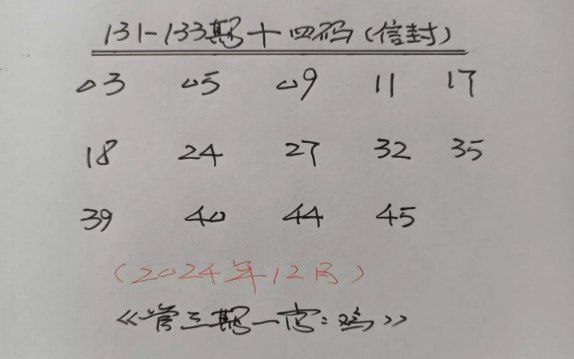 131-133期十四码(信封)
03 05 09 11 17
18 24 27 32 35
39 40 44 45
(2024年12月)
《管三期一肖:鸡》